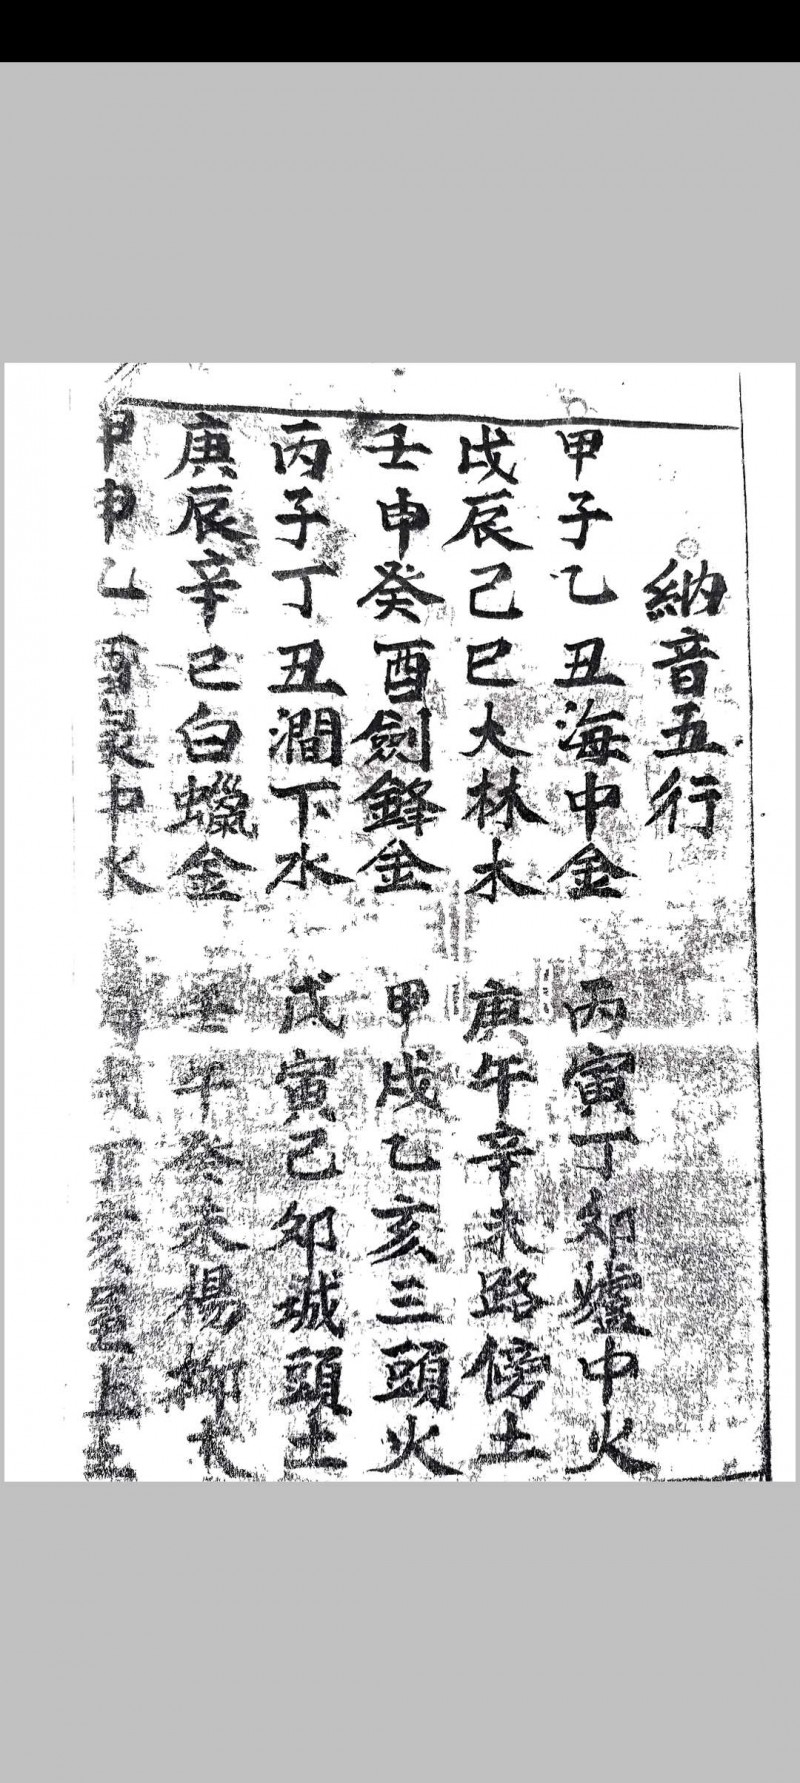 納音五行
甲子乙丑海中金 丙寅丁卯爐中火
戊辰己巳大林木 庚午辛未路傍土
壬申癸酉劍鋒金 甲戌乙亥三頭火
丙子丁丑澗下水 戊寅己卯城頭土
庚辰辛巳白蠟金 壬午癸未楊柳木
甲申乙酉泉中水 戌丁亥屋上土